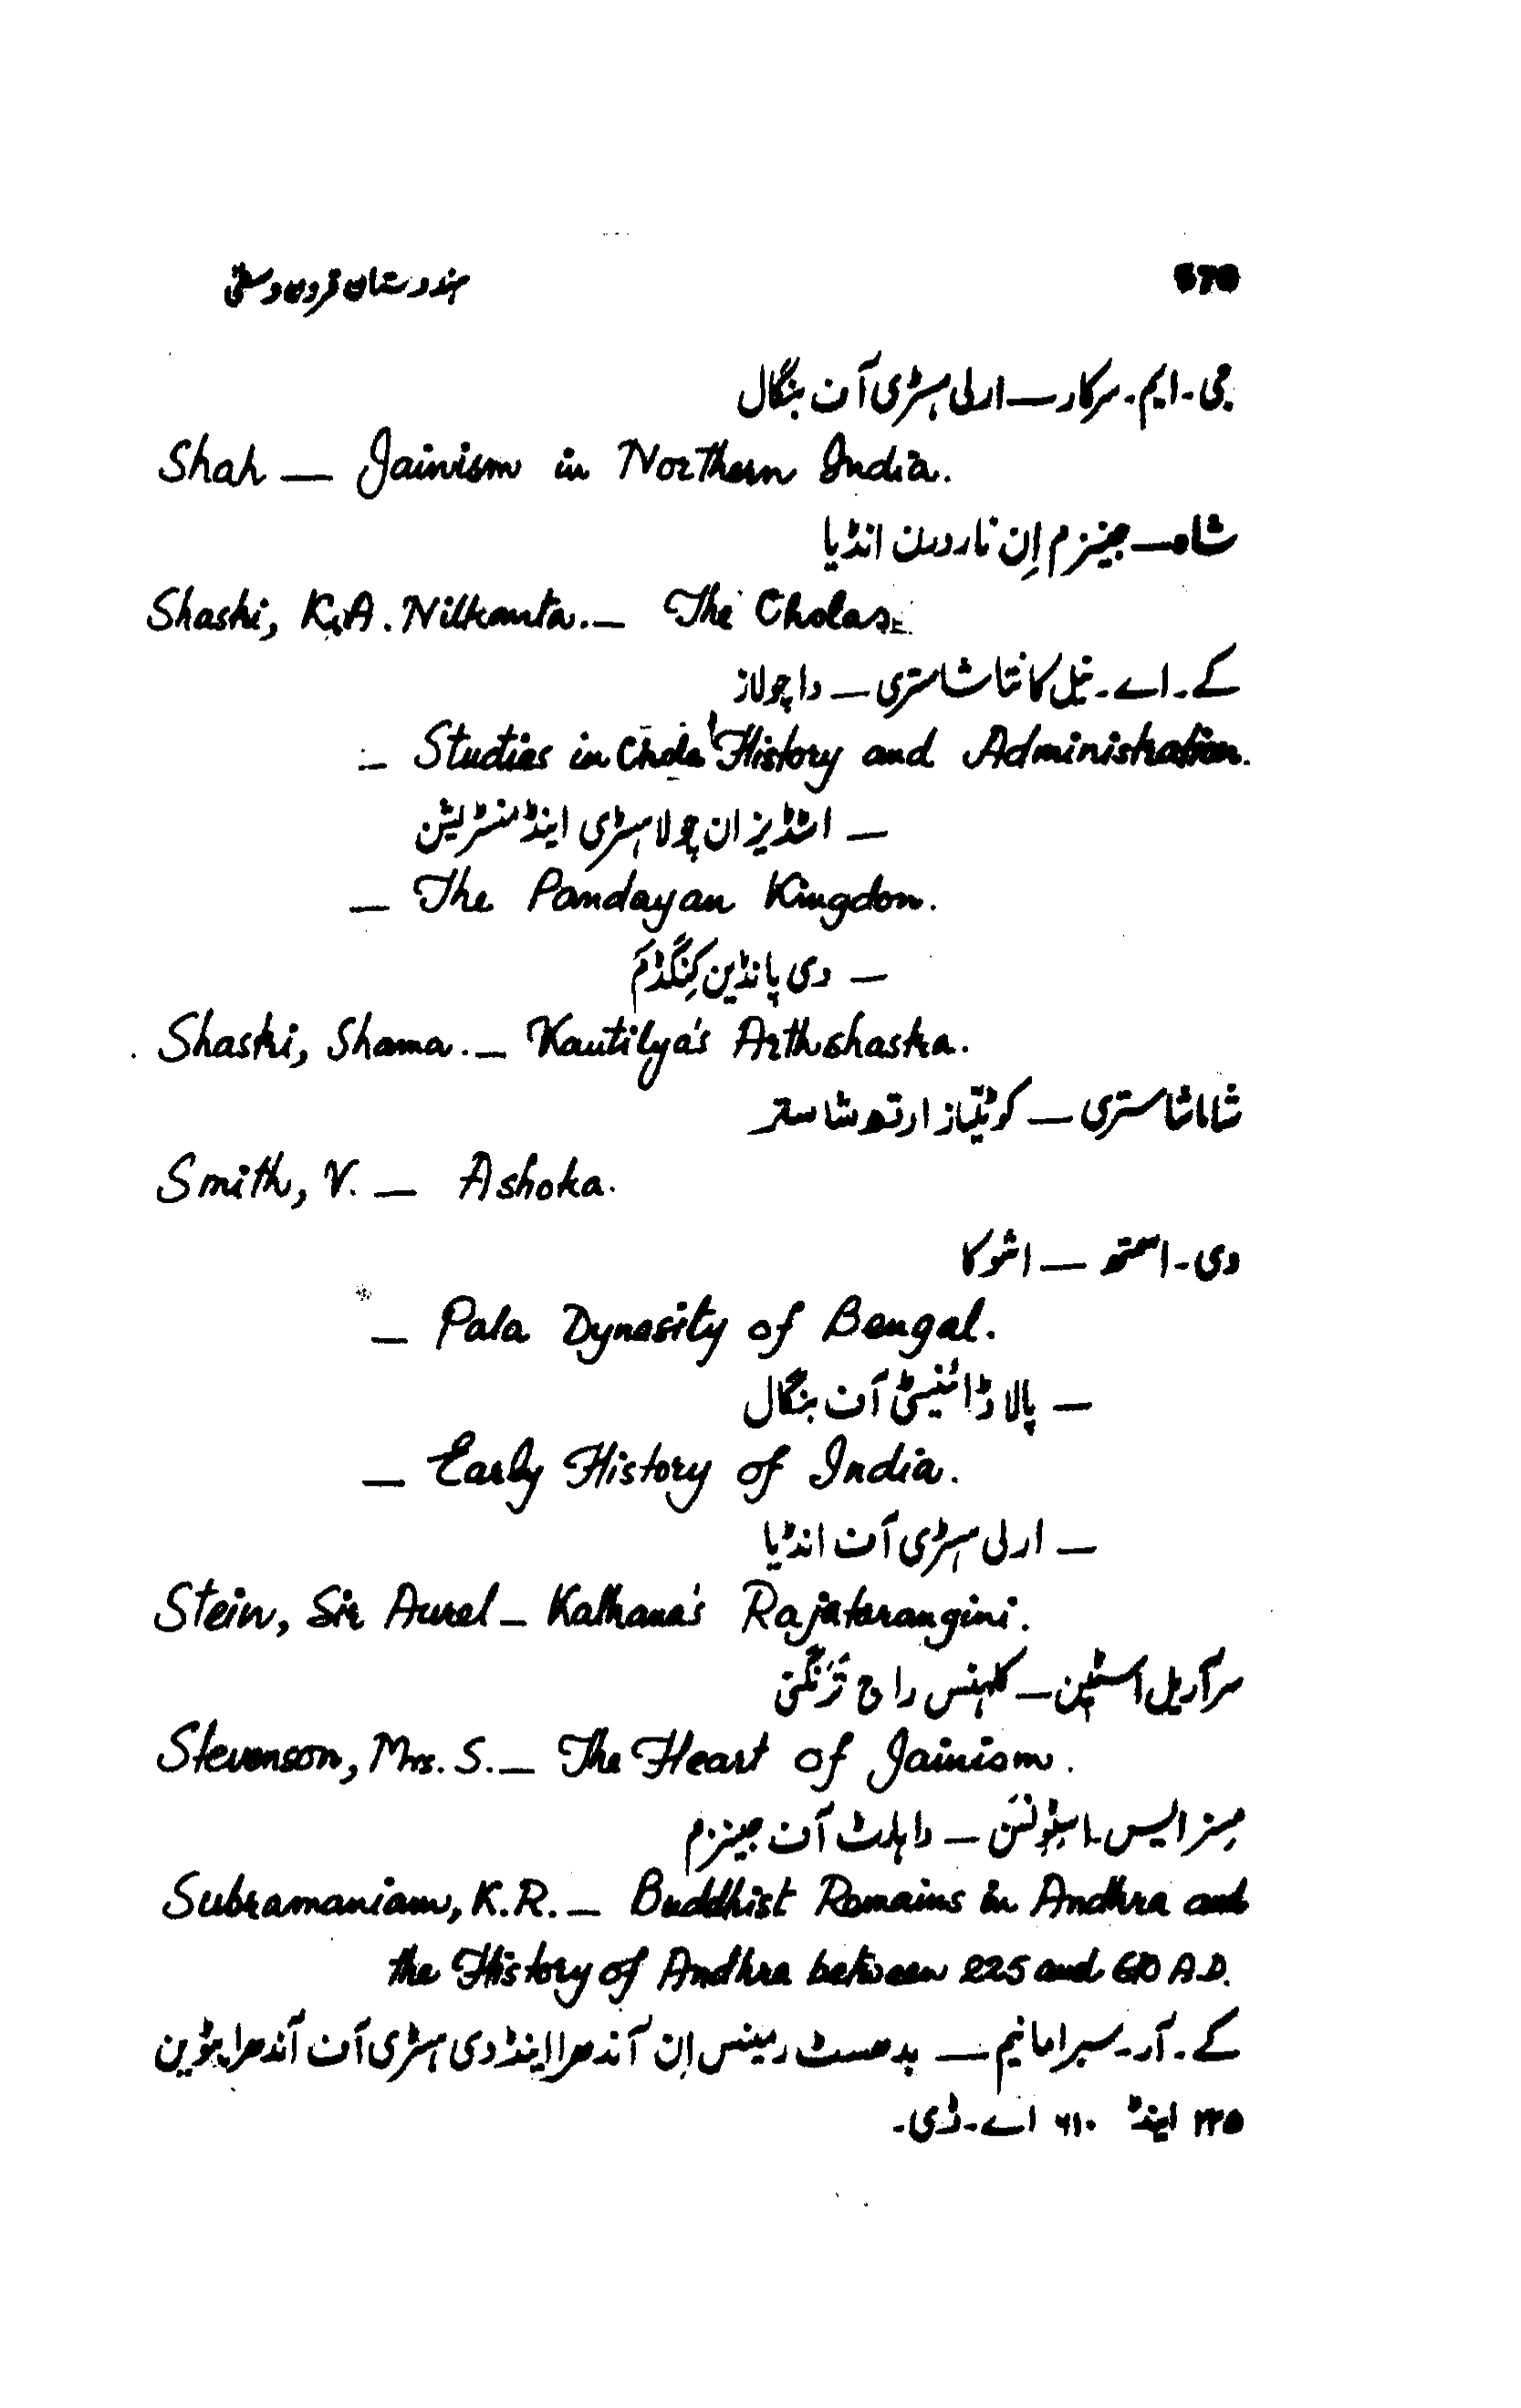 570 ہندوستان قرون وسطیٰ
جی۔ایم۔سرکار—ارلی ہسٹری آف بنگال
Shah — Jainism in Northern India.
شاہ—جینزم اِن ناردرن انڈیا
Shashi, K.A. Nilkanta.— The Cholas
کے۔اے۔نیل کانتا شاستری — دا چولاز
— Studies in Chola History and Administration.
— اسٹڈیز ان چولا ہسٹری اینڈ منسٹریشن
— The Pandayan Kingdom.
— دی پانڈین کِنگڈم
Shastri, Shama.— Kautilya's Arthshastra.
شاما شاستری — کوٹیلیاز ارتھ شاستر
Smith, V. — Ashoka.
وی۔اسمتھ — اشوکا
— Pala Dynasity of Bengal.
— پالا ڈائنیسٹی آف بنگال
— Early History of India.
— ارلی ہسٹری آف انڈیا
Stein, Sir Aurel — Kalhana's Rajatarangini.
سر آریل اسٹین — کلہنس راج ترنگنی
Stevenson, Mrs. S.— The Heart of Jainism.
مسز ایس۔اسٹونسن — دا ہارٹ آف جینزم
Subramaniam, K.R.— Buddhist Remains in Andhra and
the History of Andhra between 225 and 610 A.D.
کے۔آر۔سبرامانیم — بدھسٹ رمینس اِن آندھرا اینڈ دی ہسٹری آف آندھرا بٹوین
۲۲۵ اینڈ ۶۱۰ اے۔ڈی۔